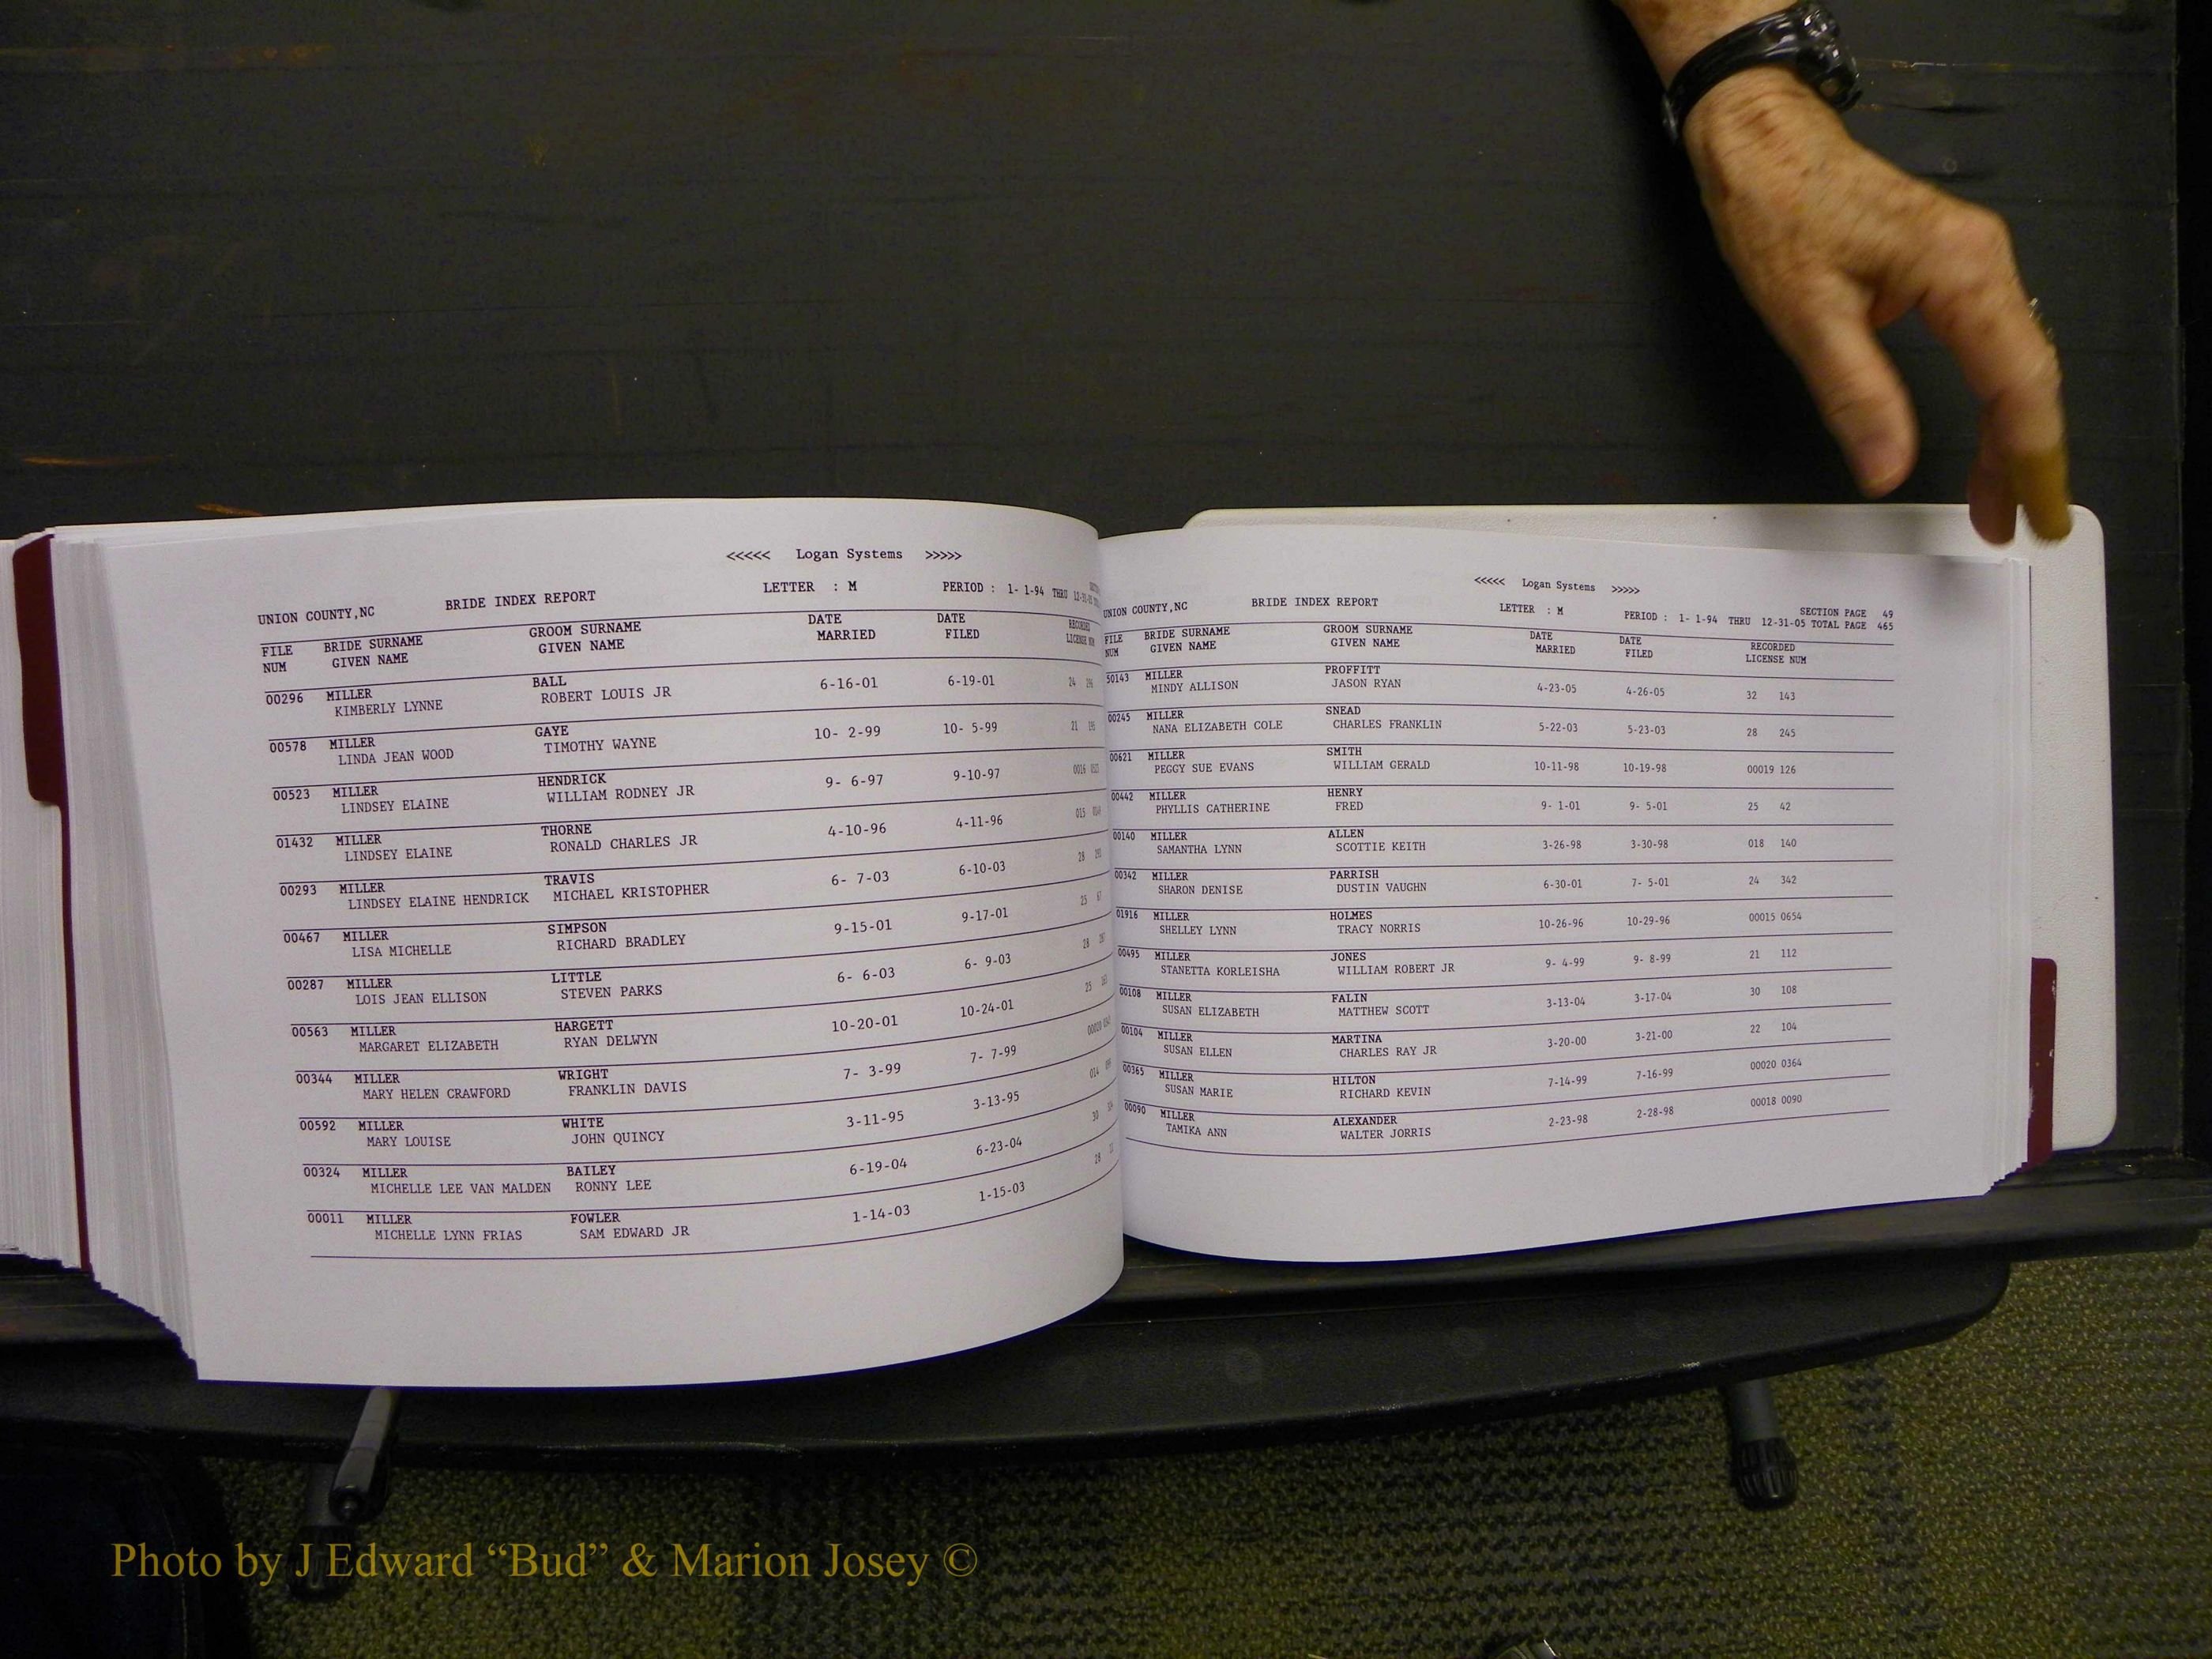 <<<<< Logan Systems >>>>>
UNION COUNTY,NC BRIDE INDEX REPORT LETTER : M PERIOD : 1- 1-94 THRU
FILE BRIDE SURNAME GROOM SURNAME DATE DATE RECORDED
NUM GIVEN NAME GIVEN NAME MARRIED FILED LICENSE NUM
00296 MILLER BALL 6-16-01 6-19-01
KIMBERLY LYNNE ROBERT LOUIS JR
00578 MILLER GAYE 10- 2-99 10- 5-99
LINDA JEAN WOOD TIMOTHY WAYNE
00523 MILLER HENDRICK 9- 6-97 9-10-97
LINDSEY ELAINE WILLIAM RODNEY JR
01432 MILLER THORNE 4-10-96 4-11-96
LINDSEY ELAINE RONALD CHARLES JR
00293 MILLER TRAVIS 6- 7-03 6-10-03
LINDSEY ELAINE HENDRICK MICHAEL KRISTOPHER
00467 MILLER SIMPSON 9-15-01 9-17-01
LISA MICHELLE RICHARD BRADLEY
00287 MILLER LITTLE 6- 6-03 6- 9-03
LOIS JEAN ELLISON STEVEN PARKS
00563 MILLER HARGETT 10-20-01 10-24-01
MARGARET ELIZABETH RYAN DELWYN
00344 MILLER WRIGHT 7- 3-99 7- 7-99
MARY HELEN CRAWFORD FRANKLIN DAVIS
00592 MILLER WHITE 3-11-95 3-13-95
MARY LOUISE JOHN QUINCY
00324 MILLER BAILEY 6-19-04 6-23-04
MICHELLE LEE VAN MALDEN RONNY LEE
00011 MILLER FOWLER 1-14-03 1-15-03
MICHELLE LYNN FRIAS SAM EDWARD JR
<<<<< Logan Systems >>>>>
SECTION PAGE 49
UNION COUNTY,NC BRIDE INDEX REPORT LETTER : M PERIOD : 1- 1-94 THRU 12-31-05 TOTAL PAGE 465
FILE BRIDE SURNAME GROOM SURNAME DATE DATE RECORDED
NUM GIVEN NAME GIVEN NAME MARRIED FILED LICENSE NUM
50143 MILLER PROFFITT 4-23-05 4-26-05 32 143
MINDY ALLISON JASON RYAN
00245 MILLER SNEAD 5-22-03 5-23-03 28 245
NANA ELIZABETH COLE CHARLES FRANKLIN
00621 MILLER SMITH 10-11-98 10-19-98 00019 126
PEGGY SUE EVANS WILLIAM GERALD
00442 MILLER HENRY 9- 1-01 9- 5-01 25 42
PHYLLIS CATHERINE FRED
00140 MILLER ALLEN 3-26-98 3-30-98 018 140
SAMANTHA LYNN SCOTTIE KEITH
00342 MILLER PARRISH 6-30-01 7- 5-01 24 342
SHARON DENISE DUSTIN VAUGHN
01916 MILLER HOLMES 10-26-96 10-29-96 00015 0654
SHELLEY LYNN TRACY NORRIS
00495 MILLER JONES 9- 4-99 9- 8-99 21 112
STANETTA KORLEISHA WILLIAM ROBERT JR
00108 MILLER FALIN 3-13-04 3-17-04 30 108
SUSAN ELIZABETH MATTHEW SCOTT
00104 MILLER MARTINA 3-20-00 3-21-00 22 104
SUSAN ELLEN CHARLES RAY JR
00365 MILLER HILTON 7-14-99 7-16-99 00020 0364
SUSAN MARIE RICHARD KEVIN
00090 MILLER ALEXANDER 2-23-98 2-28-98 00018 0090
TAMIKA ANN WALTER JORRIS
Photo by J Edward “Bud” & Marion Josey ©